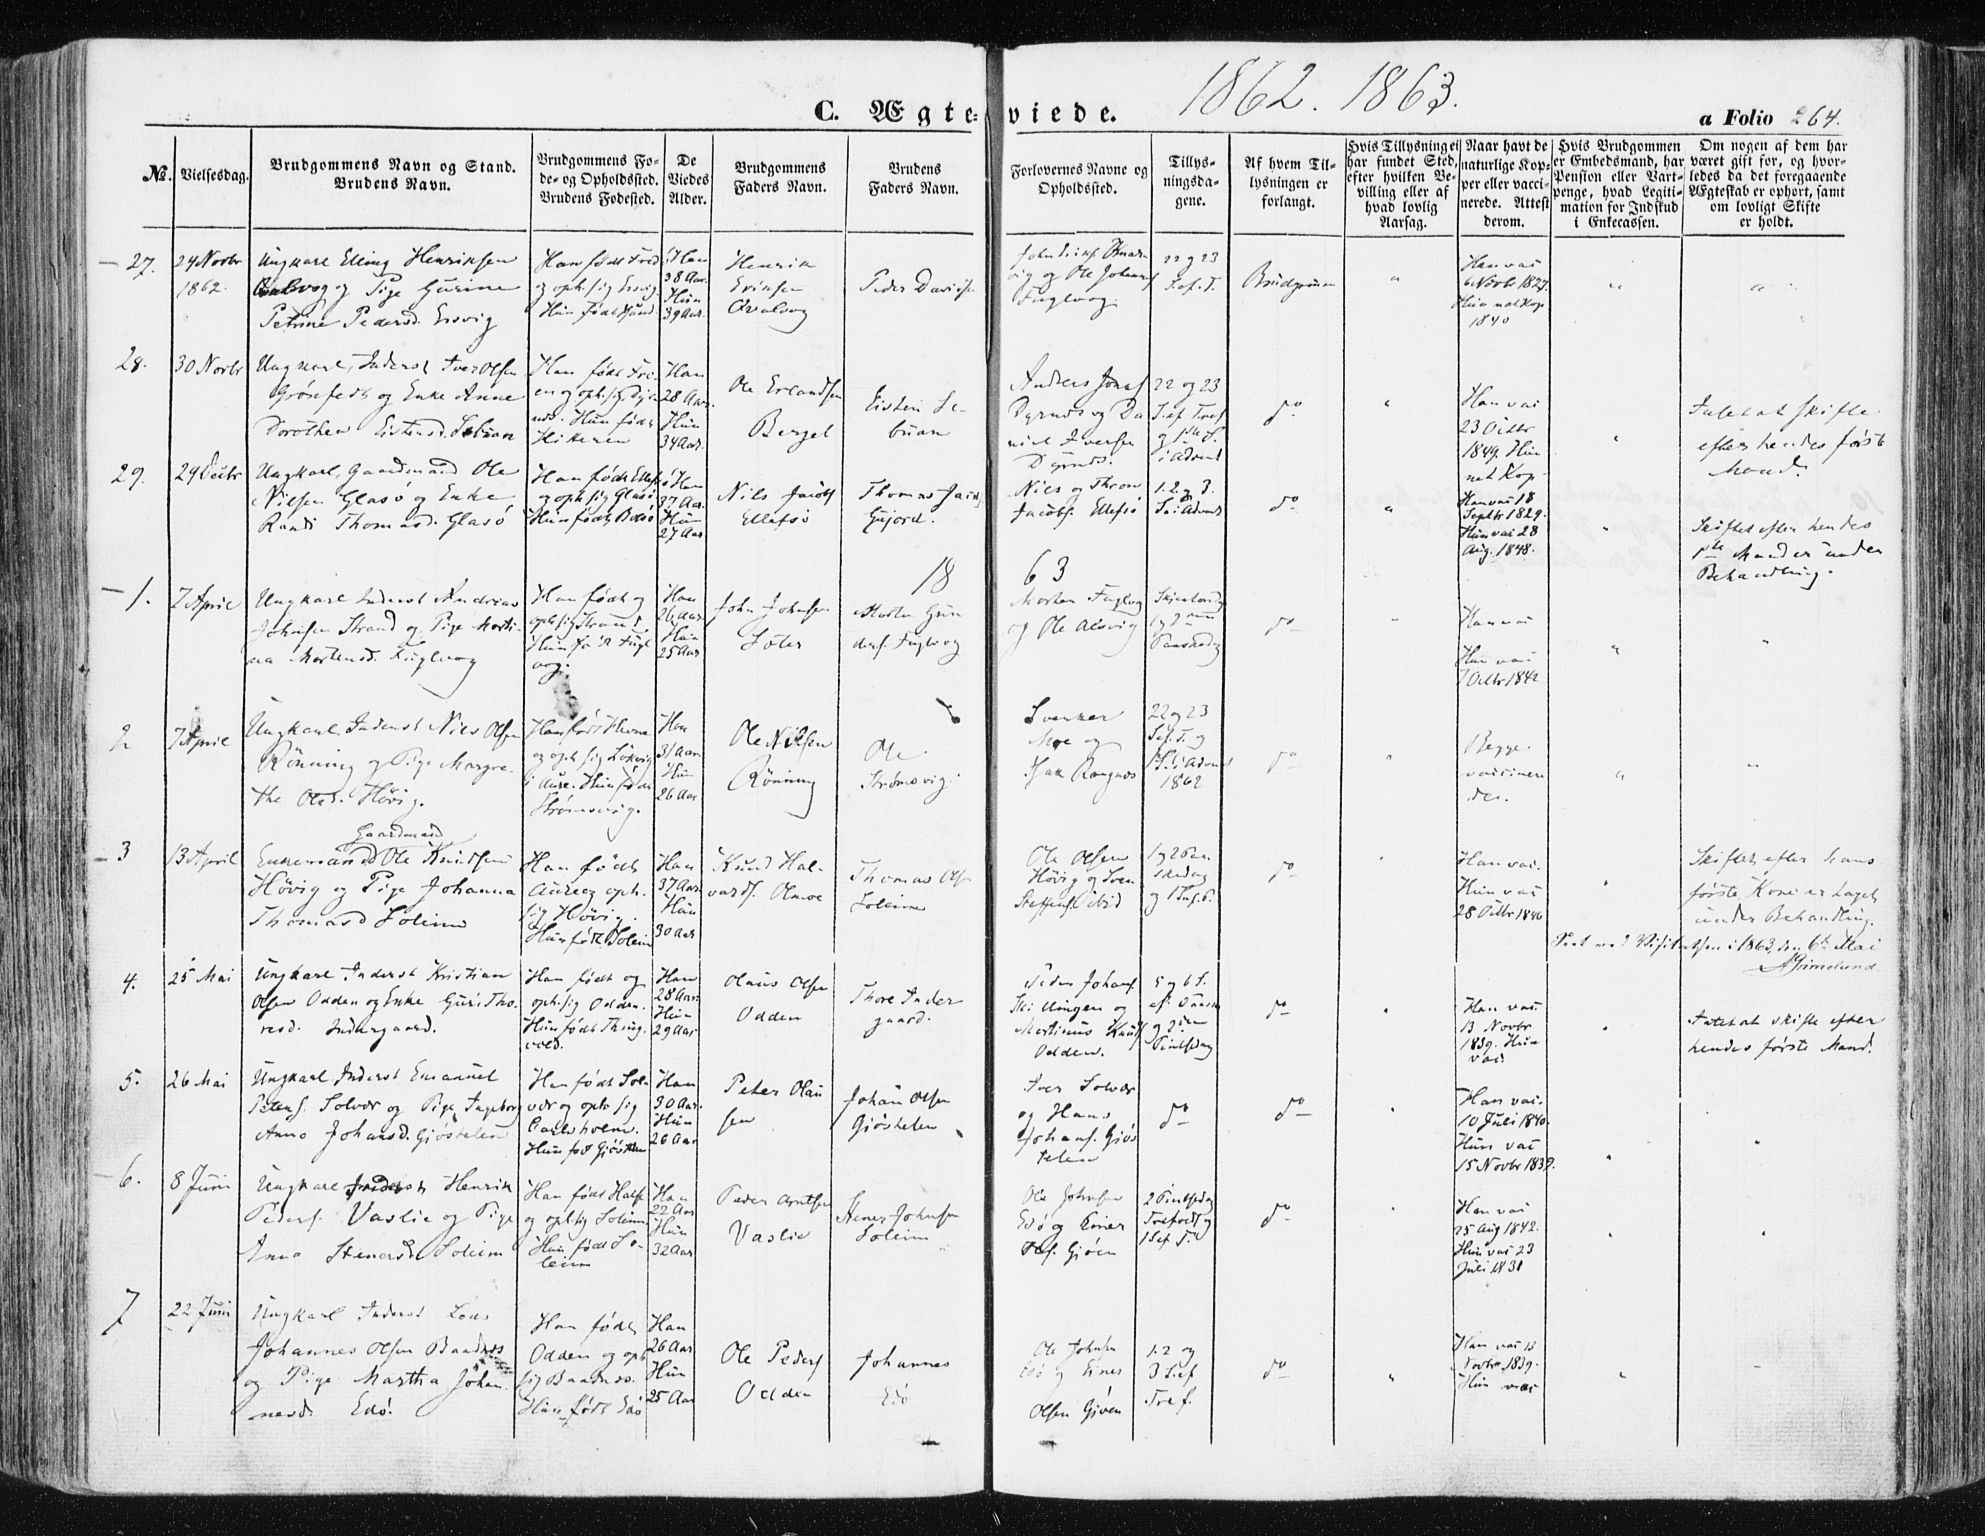 C. Ægteviede. 1862. 1863. a Folio 264.
No.
Vielsesdag.
Brudgommens Navn og Stand.
Brudens Navn.
Brudgommens Fo-
de- og Opholdssted.
Brudens Fødested.
De
Viedes
Alder.
Brudgommens
Faders Navn.
Brudens
Faders Navn.
Forlovernes Navne og
Opholdssted.
Tillys-
ningsda-
gene.
Af hvem Til-
lysningen er
forlangt.
Hvis Tillysning ei
har fundet Sted,
efter hvilken Be-
villing eller af
hvad lovlig
Aarsag.
Naar havt de
naturlige Kop-
per eller vacci-
nerede. Attest
derom.
Hvis Brudgommen
er Embedsmand, har
Pension eller Vart-
penge, hvad Legiti-
mation for Indskud
i Enkecassen.
Om nogen af dem har
været gift før, og hvor-
ledes da det foregaaende
Ægteskab er ophørt, samt
om lovligt Skifte
er holdt.
27.
24 Novbr
1862.
Ungkarl Elling Henriksen
og Pige Gurine
Petrine Pedersd. Ersvig
Han født
og oph. sig Ersvig
Hun født
Han
38 Aar.
Hun
39 Aar.
Henrik
Eriksen
Peder Davidsen
og Ole Johans
Fuglvog
22 og 23
S. ef. T.
Brudgommen
"
Han vac
6 Novbr 1827.
Hun nat Kop
1840
"
"
28.
30 Novbr
Ungkarl, Inderst Iver Olsen
Grønfedt og Enke Anne
Dorothea Eistensd. Sebuan
Han født
en og oph. sig Dyr-
nes. Hun født
Hitteren
Han
28 Aar.
Hun
34 Aar.
Ole Erlandsen
Berget
Eisten Se-
buan
Anders Jonas
Dyrnes og Da
niel Iversen
Dyrnes.
22 og 23
S. ef Tref
og 1ste S.
i Advent
do
"
Han vac
23 Octbr
1849. Hun
nat Kop
"
Intet at skifte
efter hendes første
Mand.
29.
29 Decbr
Ungkarl Gaardmand Ole
Nilsen Glasø og Enke
Randi Thomasd. Glasø
Han født Ellefsø
og oph sig Glasø
Hun født Bolsø
Han
37 Aar.
Hun
27 Aar
Nils Jacobs
Ellefsø
Thomas
Gujord.
Nils og Thron
Jacobs. Ellefsø
1. 2. og 3.
S. i Advent
do
"
Han vac 18
Septbr 1829.
Hun vac 28
Aug. 1848.
"
Skiftet efter hendes
1ste Mand er under
Behandling.
1863
1.
7 April
Ungkarl Inderst Andrias
Johnsen Strand og Pige Marti-
na Mortensd. Fuglvog
Han født og
oph sig Strand.
Hun fød Fugl
vog.
Han
26 Aar.
Hun
25 Aar
John Johnsen
Morten Gun
ders. Fuglvog
Morten Fuglvog
og Ole Alsvig
Skjærtorsdag
1 og 2den
Paaskedag
do
"
Han vac
Hun vac
7 Octbr 1842
"
"
2
7 April
Ungkarl Inderst Nils Olsen
Rönning og Pige Margre-
the Olsd. Hövig.
Han født Hevne
og oph sig
i Aure. Hun født
Strömsvig.
Han
31 Aar
Hun
26 Aar
Ole Nilsen
Röning
Ole
Strömsvig.
Svenker
Moe og
22 og 23
Sef. T. og
1 S. i Advent
1862
do
"
Begge
vaccinere
des.
"
"
3
13 April
Gaardmand
Enkemand Ole Knudsen
Hövig og Pige Johanna
Thomasd Soleim
Han født
Aure og oph.
sig Hövig.
Hun født Soleim
Han
37 Aar
Hun
30 Aar
Knud Hal-
vards. Olmoe
Thomas Olsen
Soleim
Ole Olsen
Hövig og Sven
Steffens.
1 og 2 Paa-
skedag
og 1 S. ef. P.
do
"
Han vac.
Hun vac
28 Octbr 1846
"
Skiftet efter hans
første Kone er taget
under Behandling.
Seet ved Visitatsen i 1863, den 6te Mai
AGrimelund
4.
25 Mai
Ungkarl Inderst Kristian
Olsen Odden og Enke Guri Tho-
resd. Indergaard.
Han født og
oph. sig Odden.
Hun født Thing-
vold.
Han
28 Aar.
Hun
29 Aar
Olaus Olsen
Odden
Thore Inder
gaard.
Peder Johans.
Skillingen og
Martinus Knuts
Odden.
5 og 6 S.
ef. Paaske
og 2den
Pintsedag
do
"
Han vac
13 Novbr
1839. Hun
vac
"
Intet at skifte efter
hendes første Mand.
5.
26 Mai
Ungkarl Inderst Emanuel
Peters. Solvær og Pige Ingeborg
Anna Johansd. Gjöstelen
Han født Sol-
vær og oph sig
Carlsholm.
Hun fød Gjöstelen
Han
30 Aar.
Hun
26 Aar
Peter Olau
sen
Johan Olsen
Gjöstelen
Iver Solvær
og Hans
Johans. Gjös
telen
do
do
"
Han vac.
10 Juli 1840.
Hun vac
15 Novbr 1839.
"
"
6.
8 Juni
Ungkarl Inderst Henrik
Peders. Vaslie og Pige
Anna Stenersd. Soleim
Han født Halse
og oph sig Soleim
Hun født So-
leim
Han
22 Aar
Hun
32 Aar
Peder Arntsen
Vaslie
Stener Johnsen
Soleim
Ole Johnsen
Edö og Einer
Ols. Gjöen
2 Pintsedag
Trefold og
1 S ef T.
do
"
Han vac
25 Aug 1842.
Hun vac 23
Juli 1831
"
"
7
22 Juni
Ungkarl Inderst Lods
Johannes Olsen Baadnes
og Pige Martha Johan-
nesd. Edö.
Han født
Odden og oph
sig Baadnes.
Hun født Edö
Han
26 Aar
Hun
25 Aar
Ole Peders
Odden
Johannes
Edö
Ole Johnsen
Edö og Einer
Olsen Gjöen
1. 2 og
3 S. ef
Tref.
do
"
Han vac 13
Novbr 1839.
Hun vac
"
"